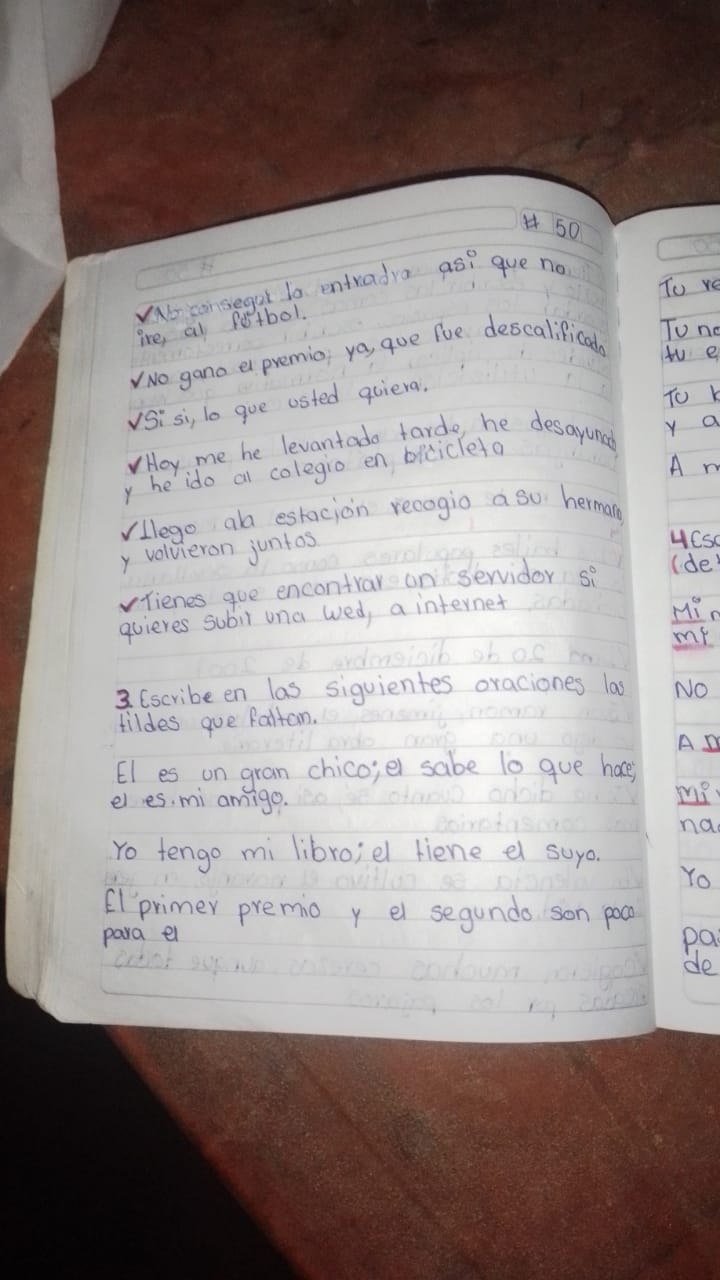 # 50
✓No conseguí la entradra así que no
ire, al fútbol.
✓No gano el premio; ya, que fue descalificado
✓Si si, lo que usted quiera.
✓Hoy me he levantado tarde, he desayunado
y he ido al colegio en bicicleta
✓llego ala estación recogio a su hermano
y volvieron juntos.
✓Tienes que encontrar un servidor si
quieres subir una wed, a internet
3. Escribe en las siguientes oraciones las
tildes que faltan.
El es un gran chico; el sabe lo que hace;
el es mi amigo.
Yo tengo mi libro; el tiene el suyo.
El primer premio y el segundo son poco
para el
Tu
Tu
tu
Tu
y a
A
4
(de
Mi
mi
No
A
mi
na
Yo
pa
de